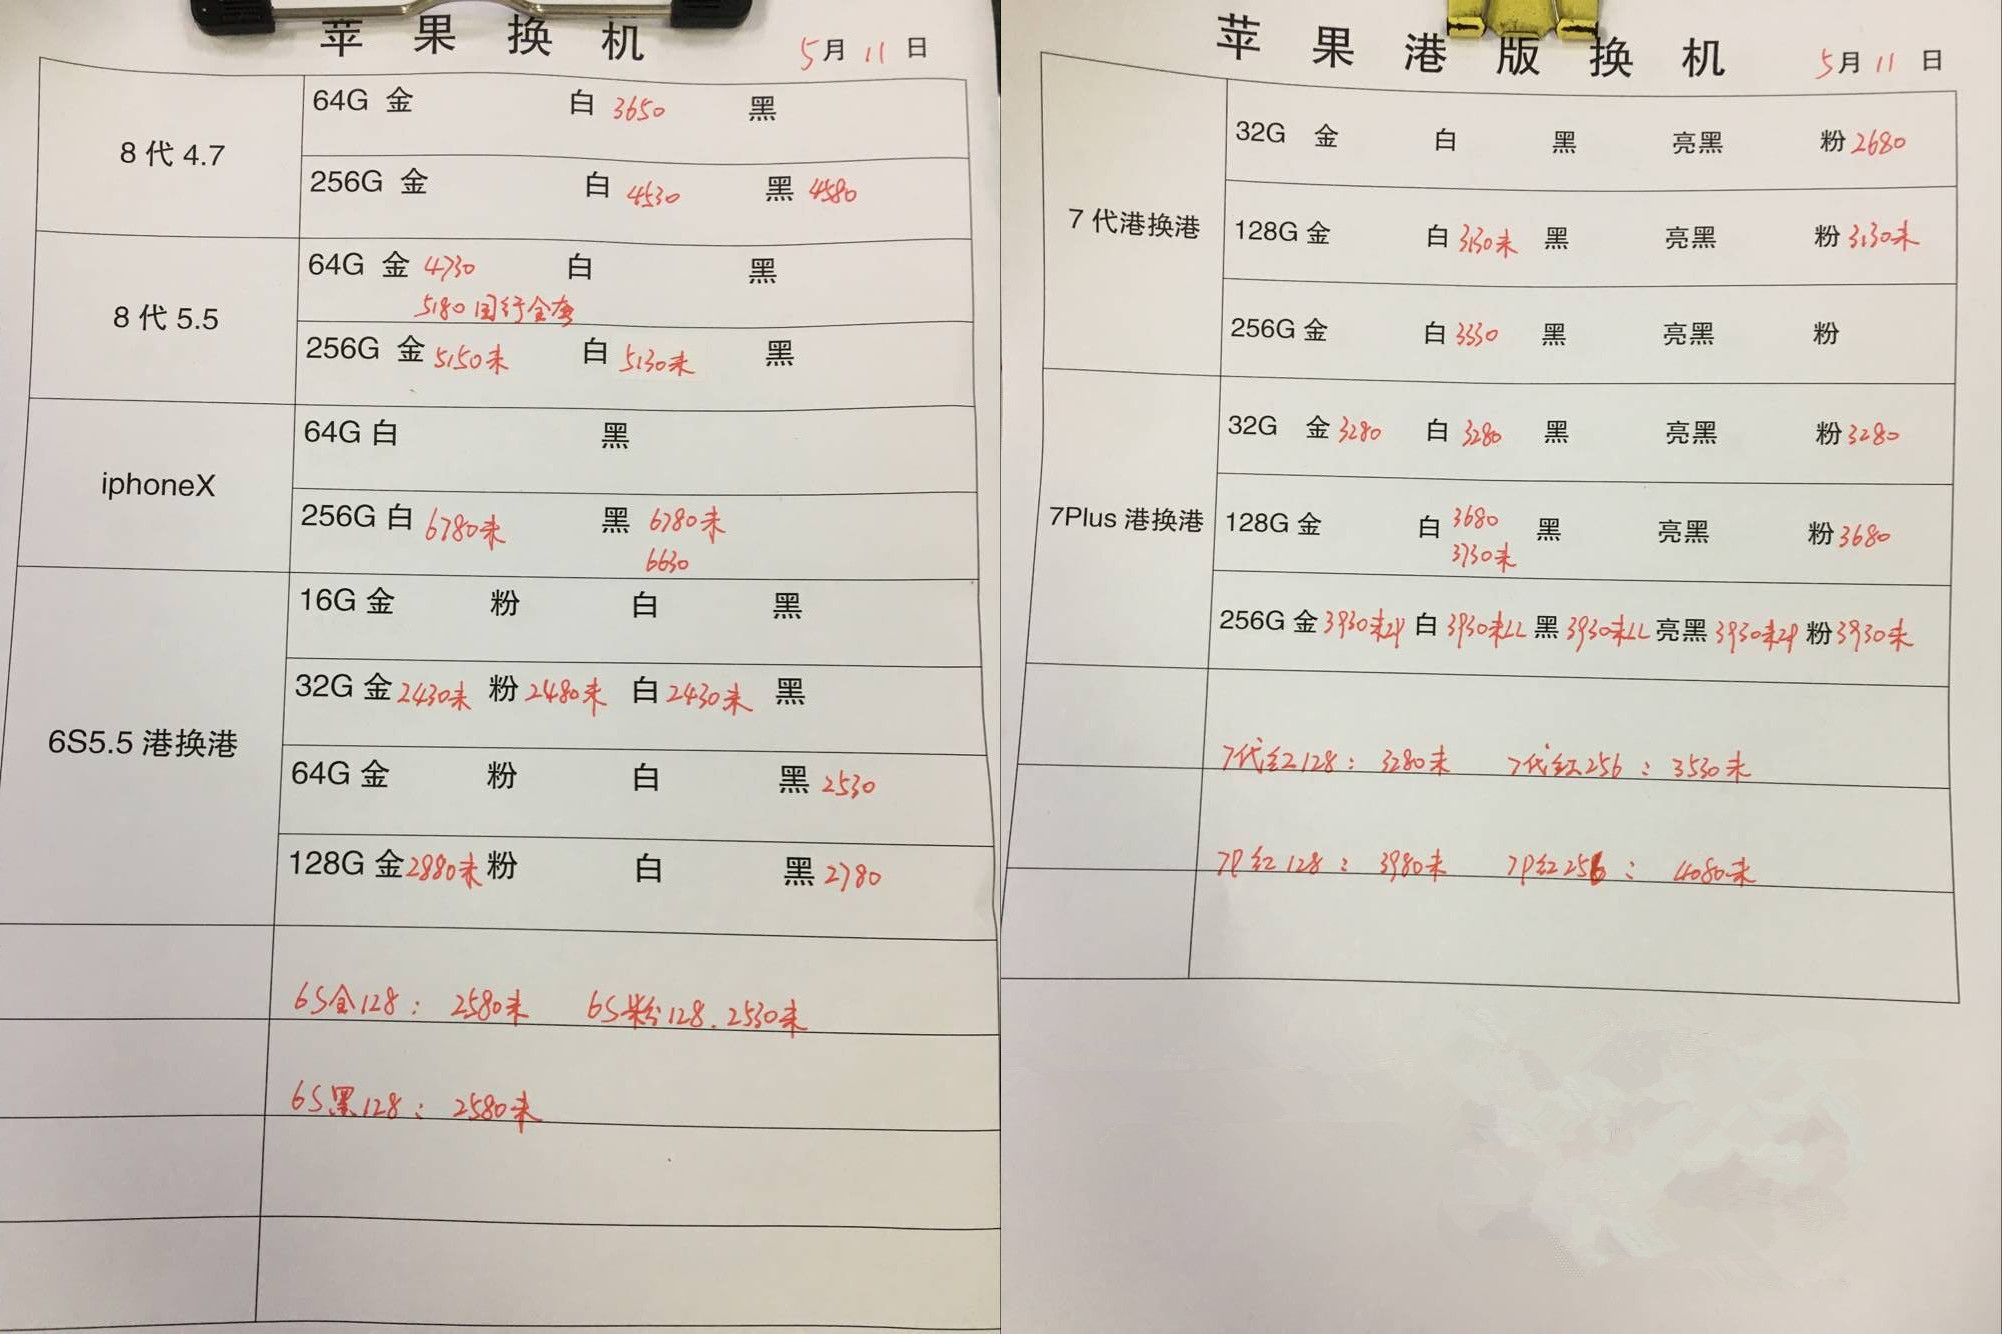 苹果换机 5月11日
8代4.7
64G 金 白 3650 黑
256G 金 白 4530 黑 4580
8代5.5
64G 金 4730 白 黑
5180国行全套
256G 金 5150未 白 5130未 黑
iphoneX
64G 白 黑
256G 白 6780未 黑 6780未
6630
6S5.5港换港
16G 金 粉 白 黑
32G 金 2430未 粉 2480未 白 2430未 黑
64G 金 粉 白 黑 2530
128G 金 2880未 粉 白 黑 2780
6S金128: 2580未 6S粉128. 2530未
6S黑128: 2580未
苹果港版换机 5月11日
7代港换港
32G 金 白 黑 亮黑 粉 2680
128G 金 白 3130未 黑 亮黑 粉 3130未
256G 金 白 3330 黑 亮黑 粉
7Plus港换港
32G 金 3280 白 3280 黑 亮黑 粉 3280
128G 金 白 3680 黑 亮黑 粉 3680
3730未
256G 金 3930未ZP 白 3930未LL 黑 3930未LL 亮黑 3930未ZP 粉 3930未
7代红128: 3280未 7代红256: 3530未
7P红128: 3980未 7P红256: 4080未